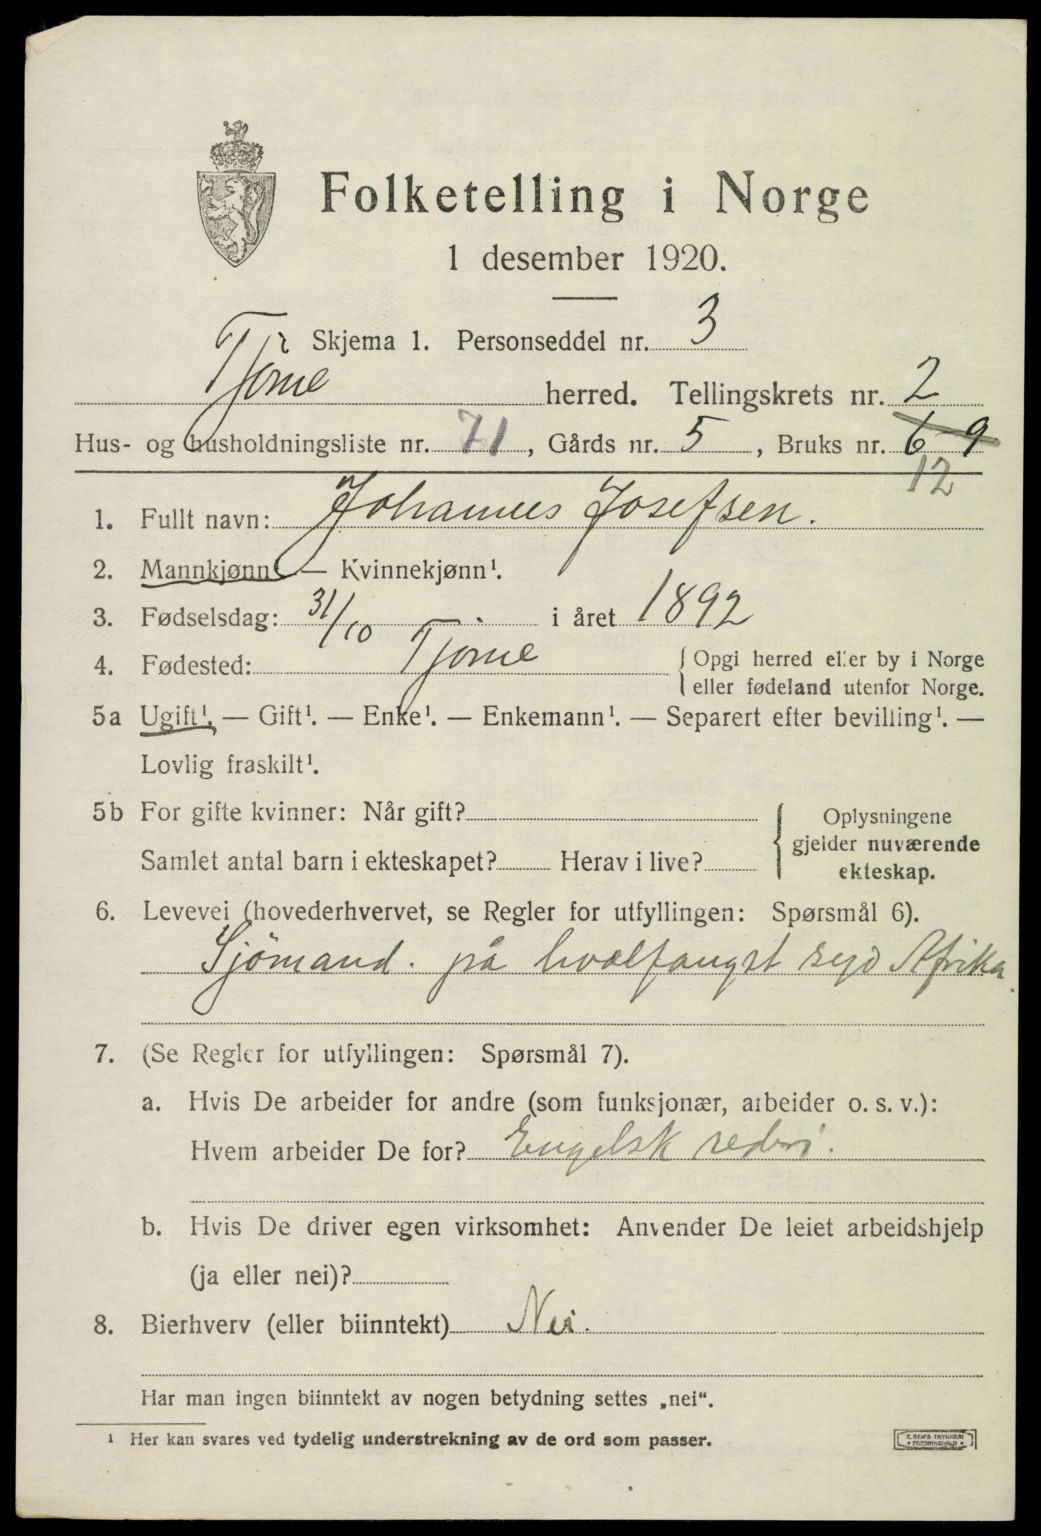 Folketelling i Norge
1 desember 1920.
Skjema 1. Personseddel nr. 3
Tjøme herred. Tellingskrets nr. 2
Hus- og husholdningsliste nr. 71, Gårds nr. 5, Bruks nr. 6 9
12
1. Fullt navn: Johannes Josefsen.
2. Mannkjønn — Kvinnekjønn¹.
3. Fødselsdag: 31/10 i året 1892
4. Fødested: Tjöme { Opgi herred eller by i Norge
eller fødeland utenfor Norge.
5a Ugift¹. — Gift¹. — Enke¹. — Enkemann¹. — Separert efter bevilling¹. —
Lovlig fraskilt¹.
5b For gifte kvinner: Når gift?
Samlet antal barn i ekteskapet? Herav i live?
{ Oplysningene
gjelder nuværende
ekteskap.
6. Levevei (hovederhvervet, se Regler for utfyllingen: Spørsmål 6).
Sjömand. på hvalfangst syd Afrika.
7. (Se Regler for utfyllingen: Spørsmål 7).
a. Hvis De arbeider for andre (som funksjonær, arbeider o. s. v.):
Hvem arbeider De for? Engelsk rederi.
b. Hvis De driver egen virksomhet: Anvender De leiet arbeidshjelp
(ja eller nei)?
8. Bierhverv (eller biinntekt) Nei.
Har man ingen biinntekt av nogen betydning settes „nei".
¹ Her kan svares ved tydelig understrekning av de ord som passer.